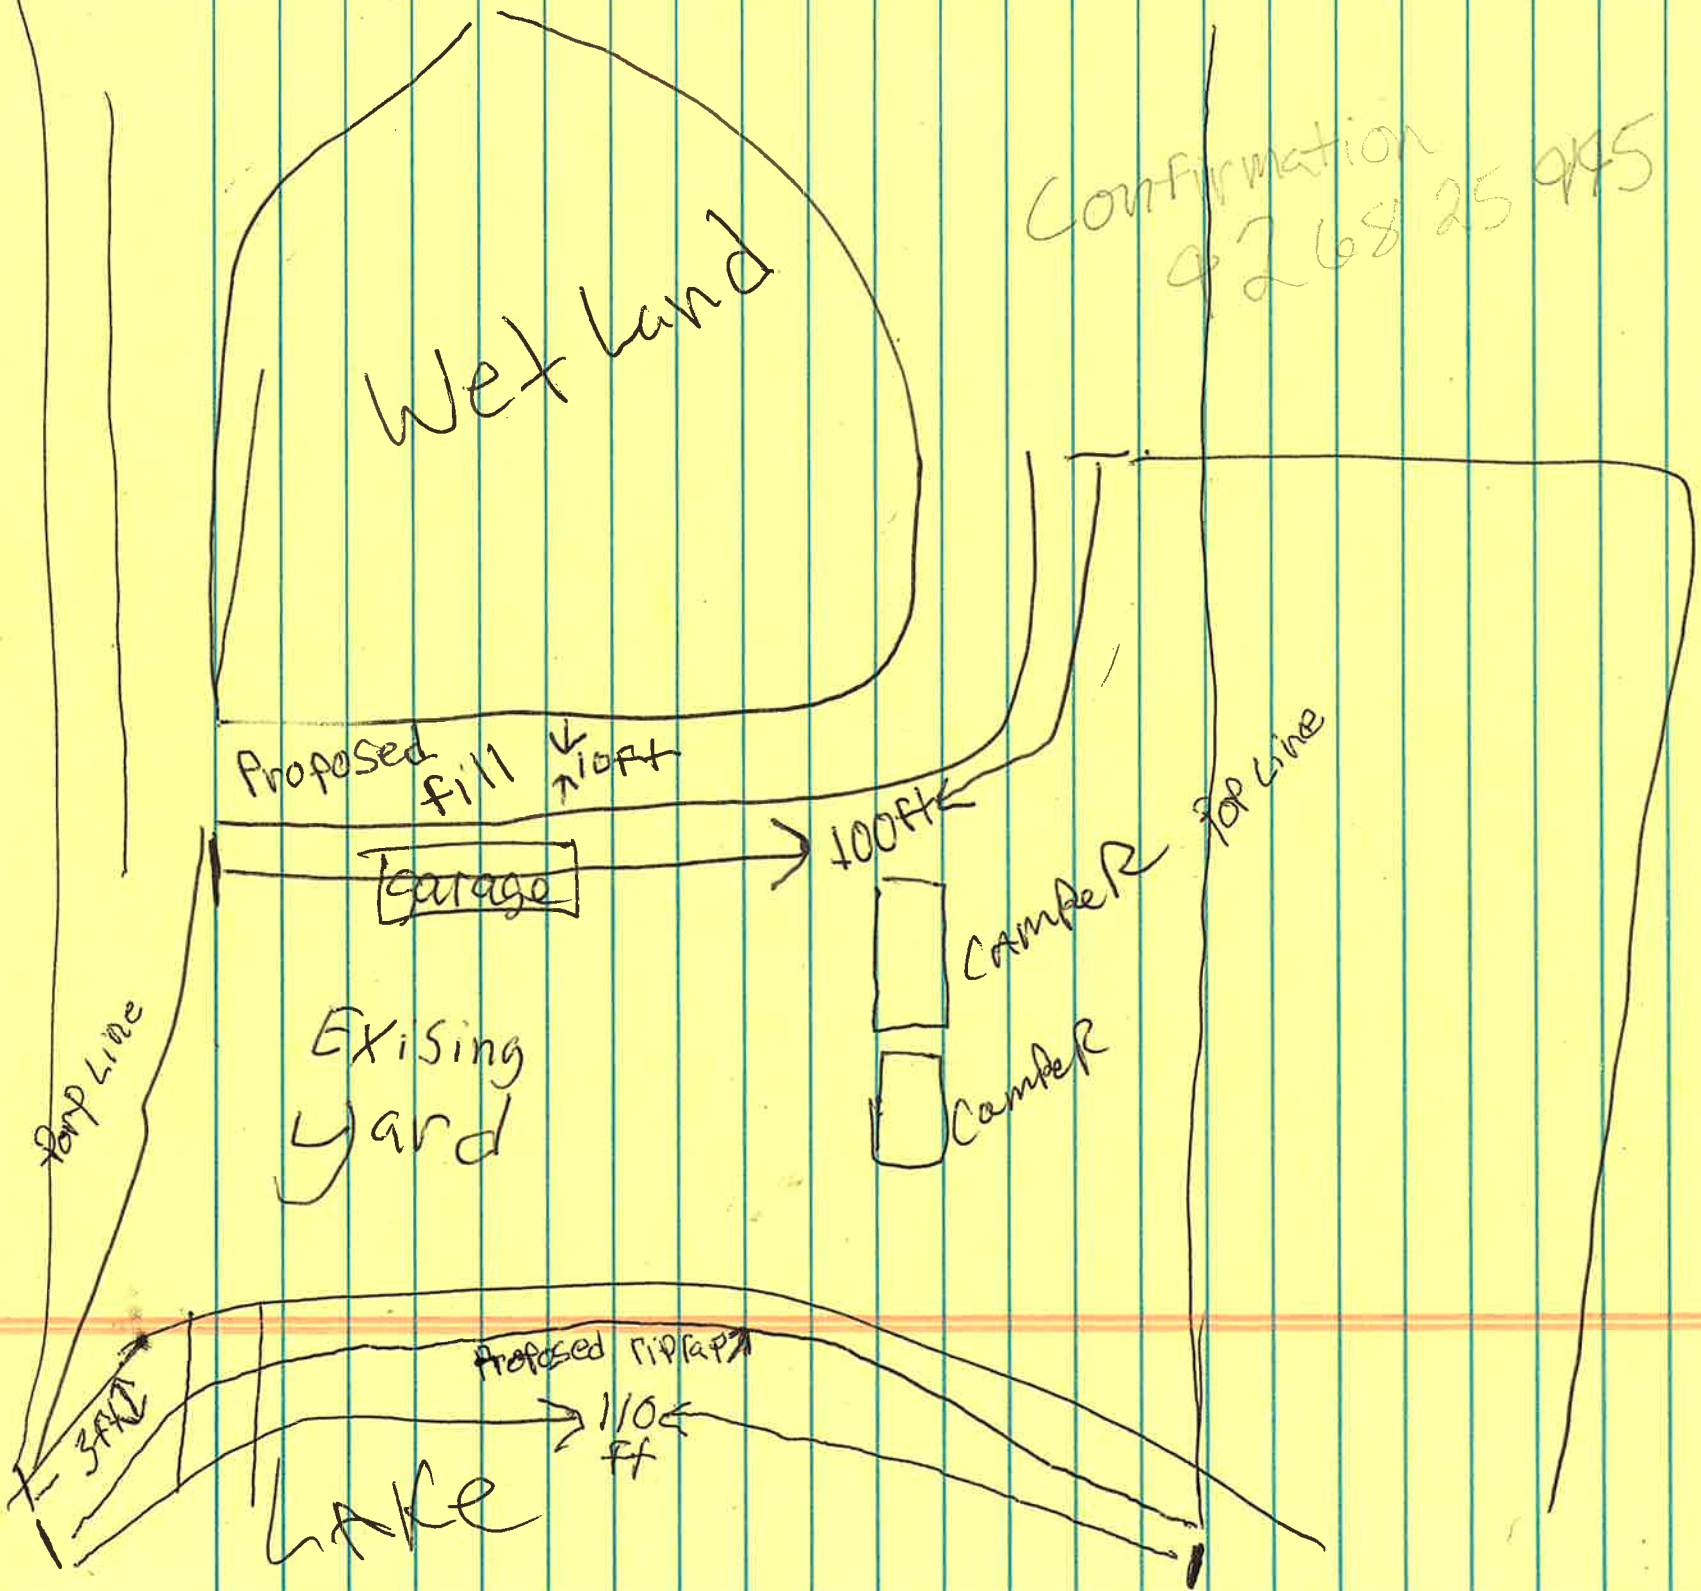 Confirmation
Wet Land
Proposed
fill
10Ft
100ft
garage
Prop Line
CAMPeR
Porp Line
Exising
yard
CamPeR
Proposed riprap
3ft
110
Ft
LAKe